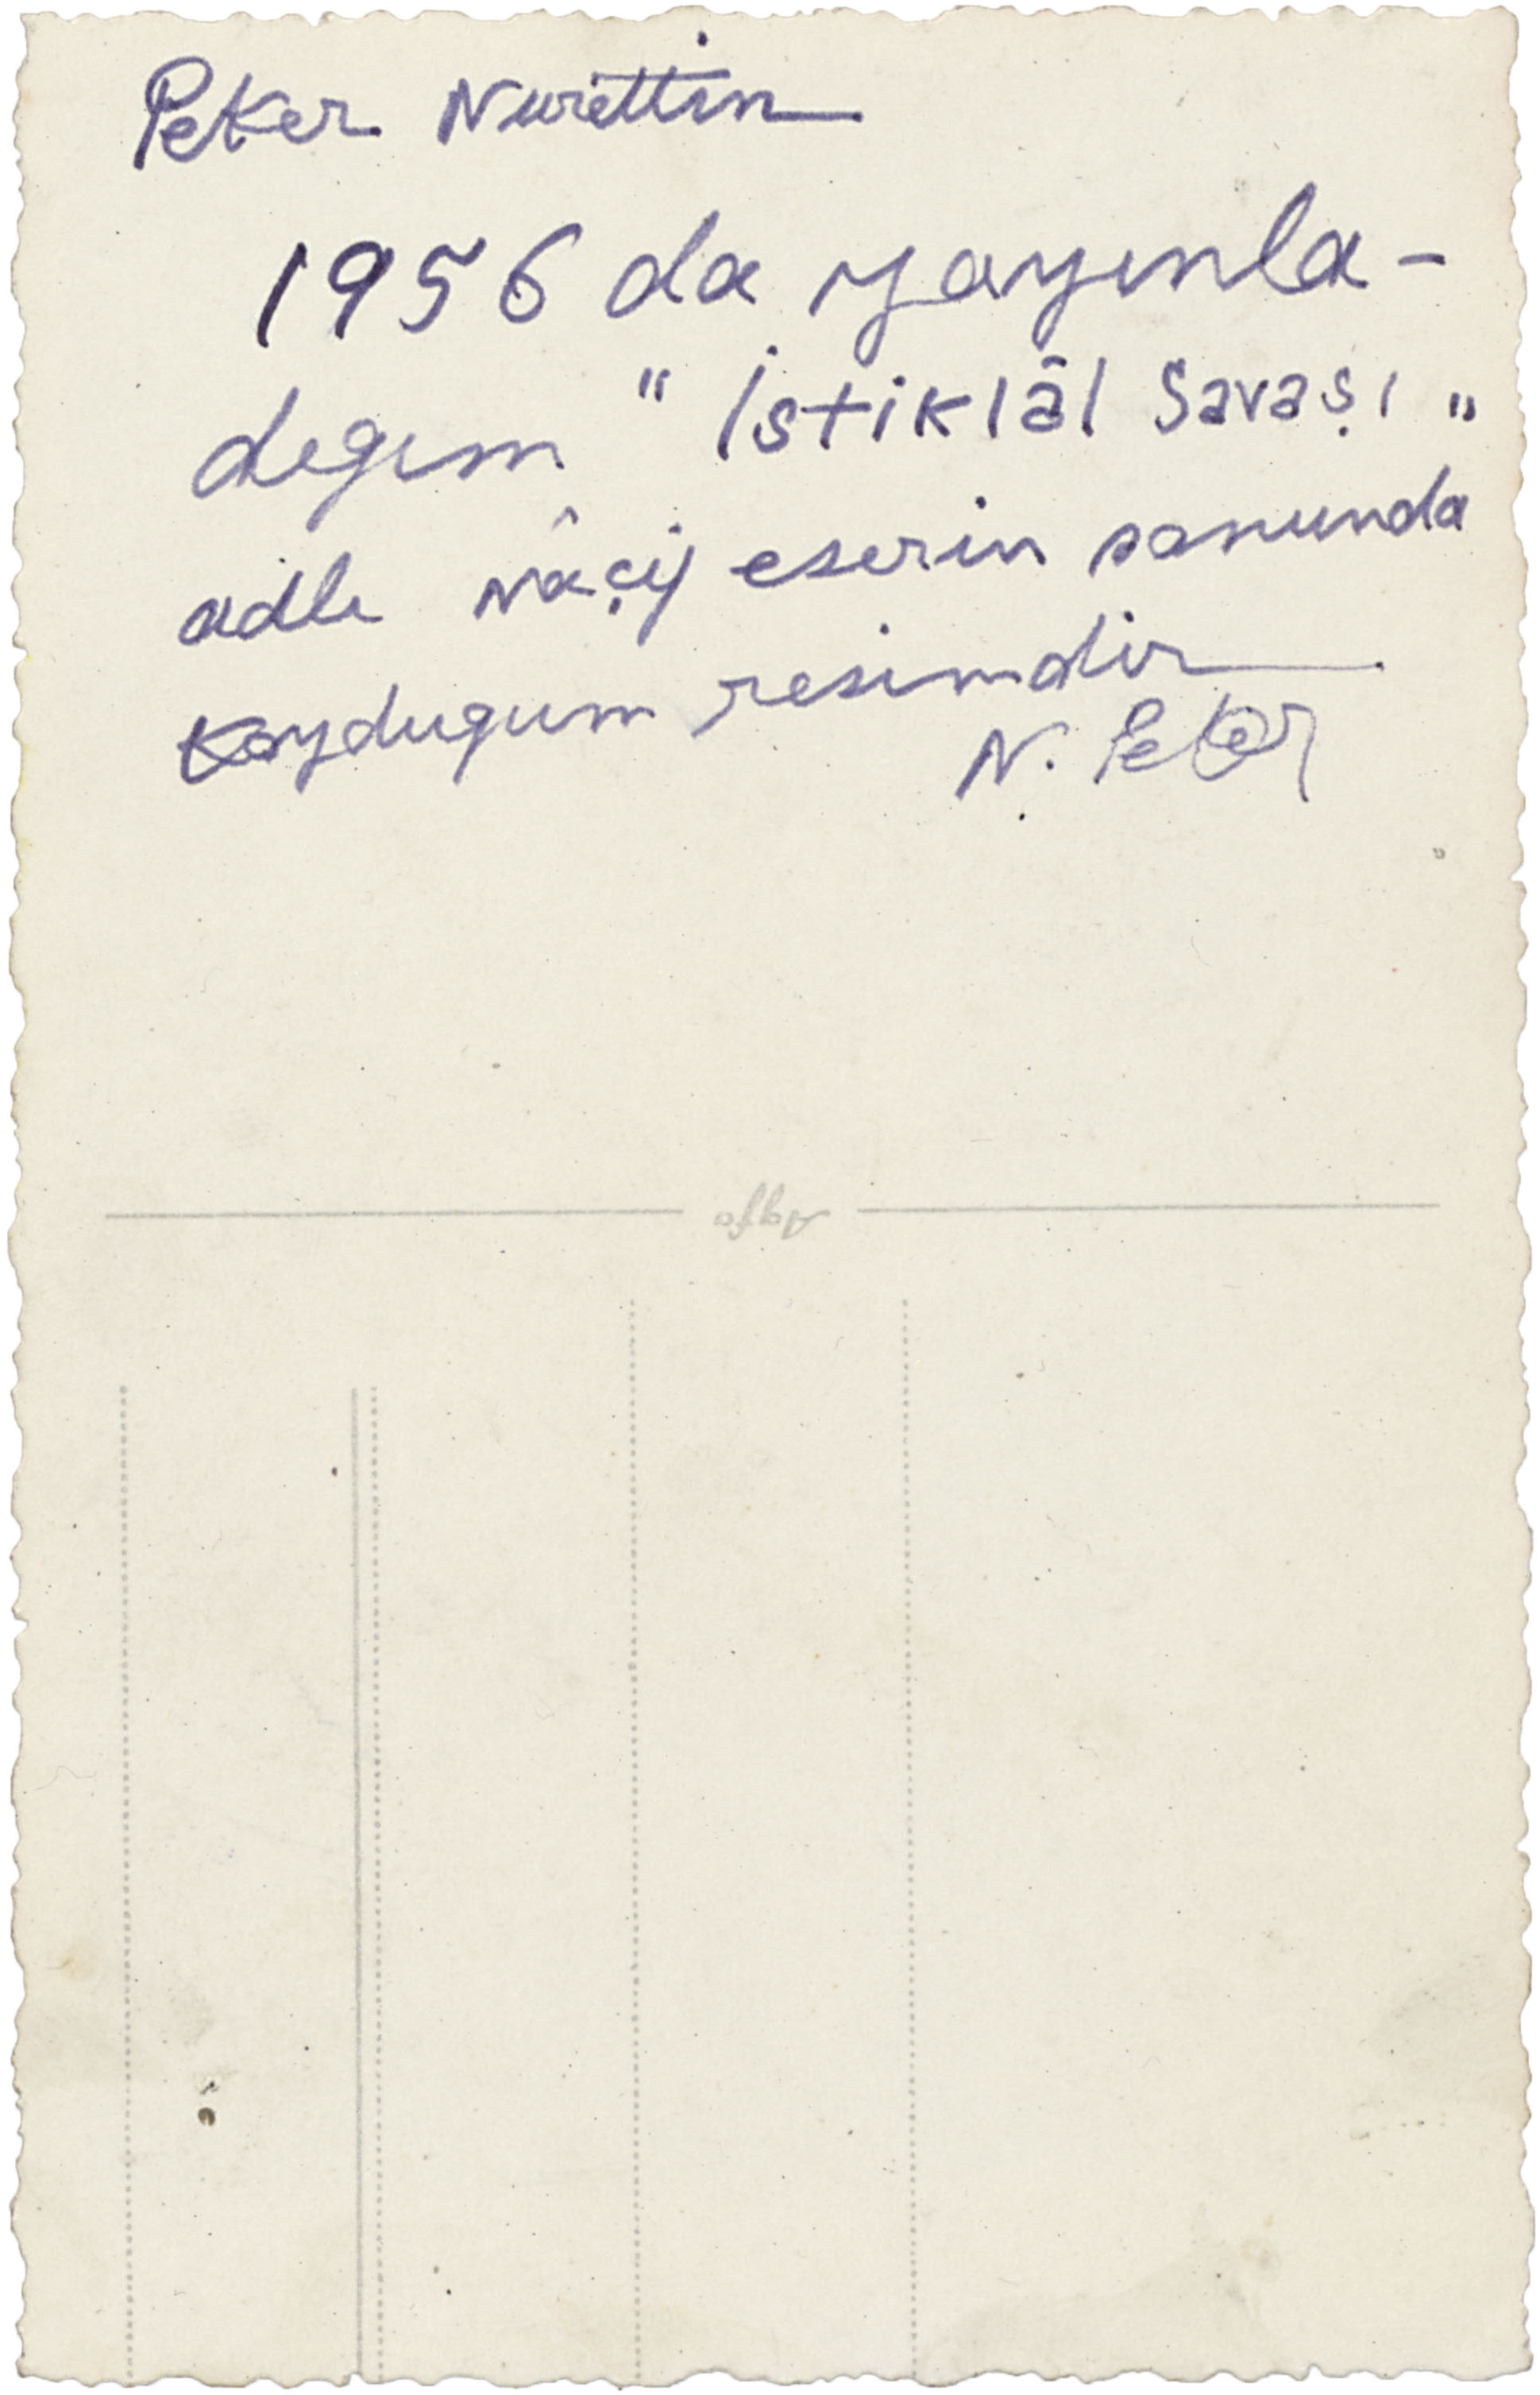 Peker Nurettin
1956 da yayınla-
dıgım " İstiklâl Savaşı "
adlı nâçij eserin sonunda
koydugum resimdir
N. Peker
Agfa